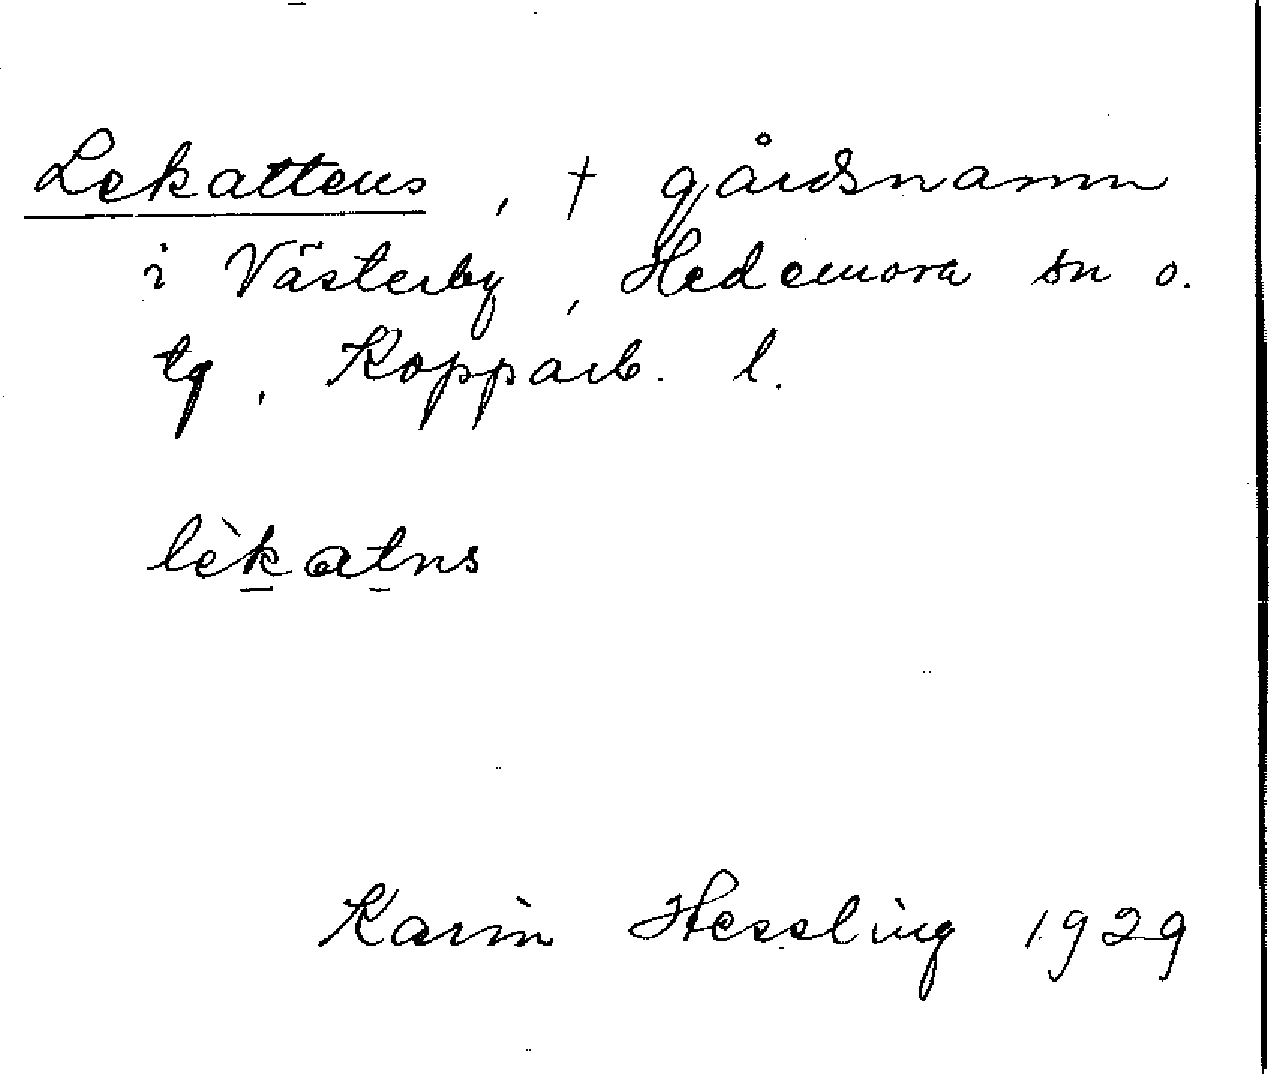 Lekattens, † gårdsnamn
i Västerby, Hedemora sn o.
tg, Kopparb. l.
lèkatns
Karin Hessling 1929